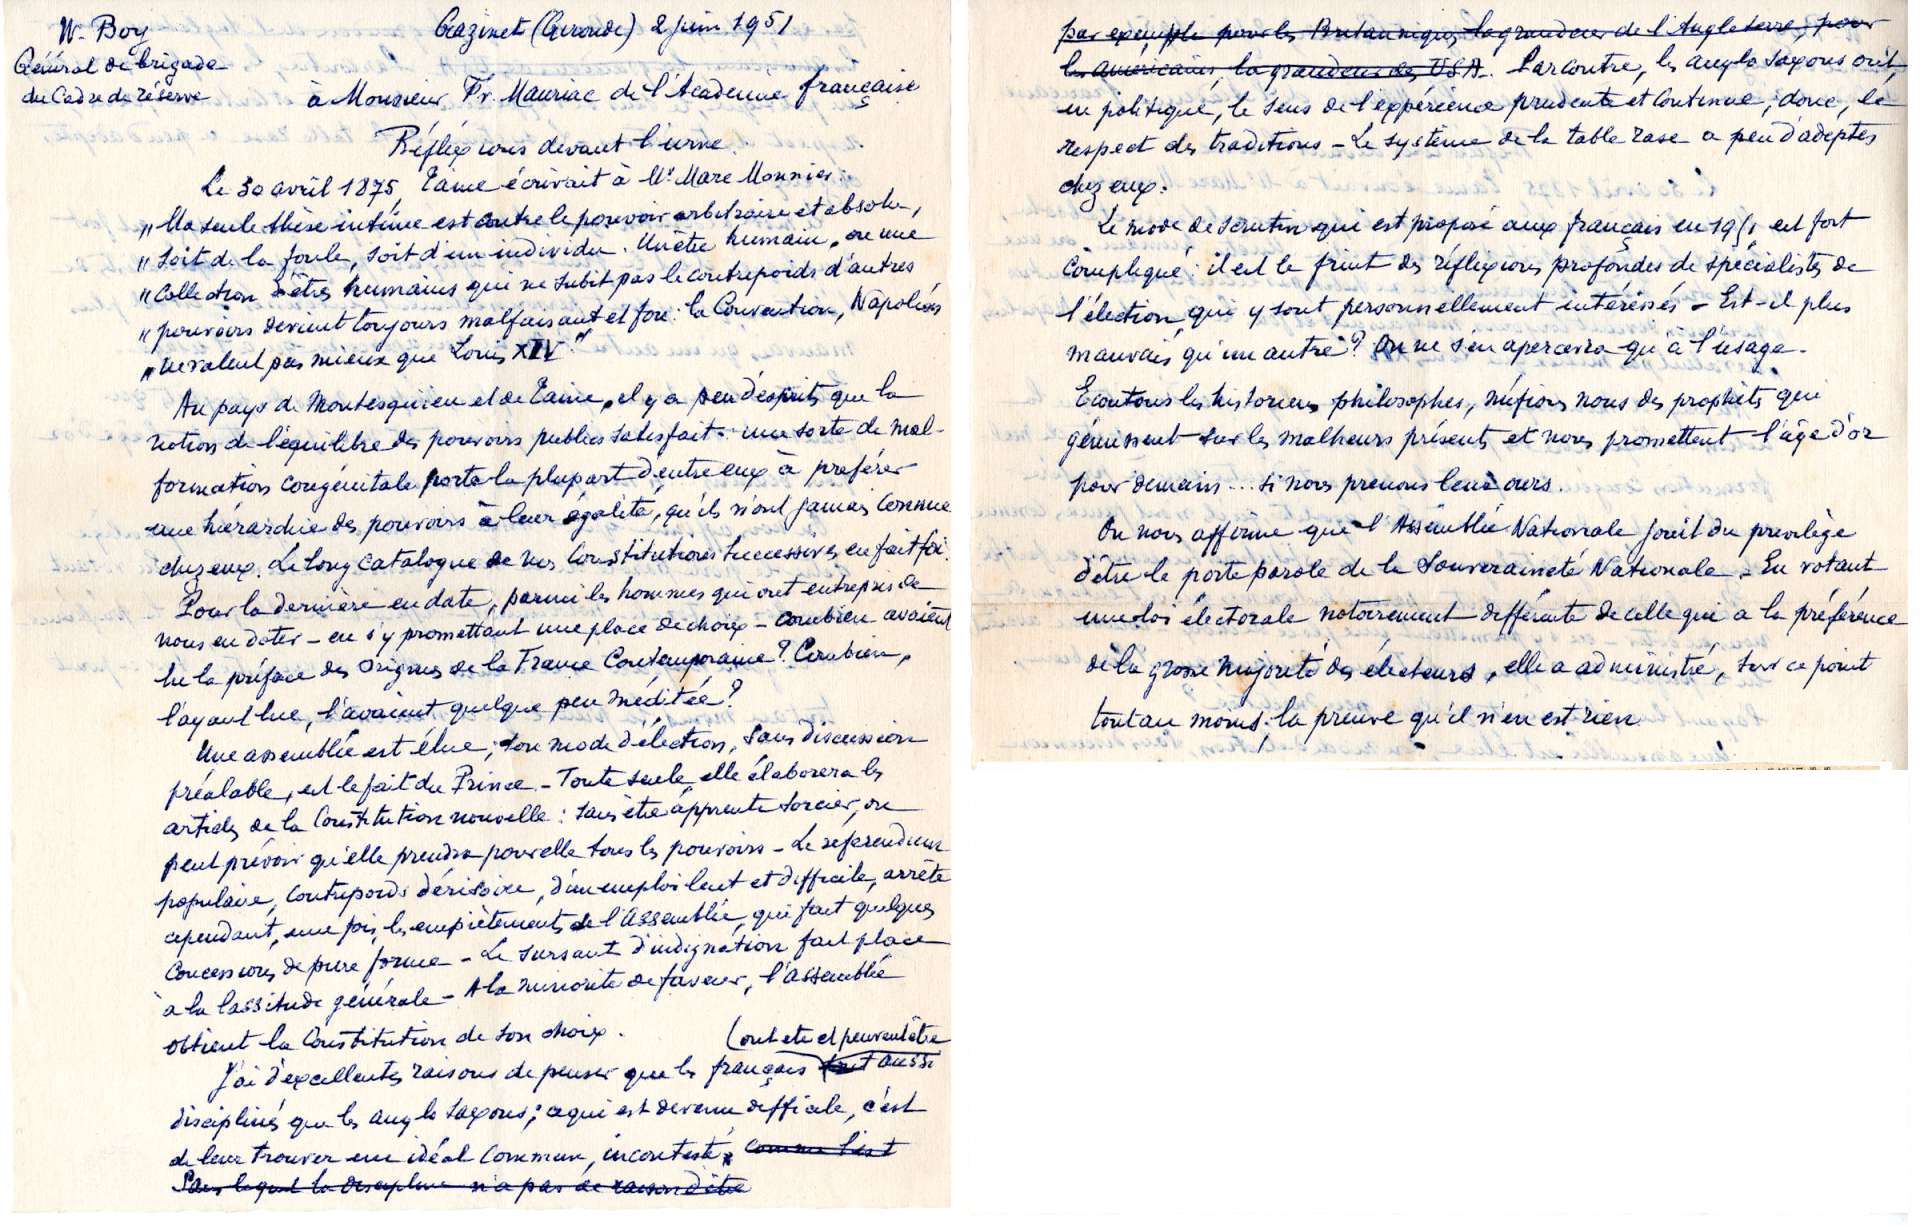 W. Boy
Général de brigade
du Cadre de réserve
Gazinet (Gironde) 2 juin 1951
à Monsieur Fr. Mauriac de l'Académie française
Réflexions devant l'urne.
Le 30 avril 1875, Taine écrivait à Mr Marc Monnier :
" Ma seule thèse intime est contre le pouvoir arbitraire et absolu,
" soit de la foule, soit d'un individu. Un être humain, ou une
" collection d'êtres humains qui ne subit pas le contrepoids d'autres
" pouvoirs devient toujours malfaisant et fou : la Convention, Napoléon
" ne valent pas mieux que Louis XIV "
Au pays de Montesquieu et de Taine, il y a peu d'esprits que la
notion de l'équilibre des pouvoirs publics satisfait : une sorte de mal-
formation congénitale porte la plupart d'entre eux à préférer
une hiérarchie des pouvoirs à leur égalité, qu'ils n'ont jamais connue
chez eux. Le long catalogue de nos Constitutions successives en fait foi.
Pour la dernière en date, parmi les hommes qui ont entrepris de
nous en doter – en s'y promettant une place de choix – combien avaient
lu la préface des Origines de la France Contemporaine ? Combien,
l'ayant lue, l'avaient quelque peu méditée ?
Une assemblée est élue ; son mode d'élection, sans discussion
préalable, est le fait du Prince – Toute seule, elle élaborera les
articles de la Constitution nouvelle : sans être apprenti sorcier, on
peut prévoir qu'elle prendra pour elle tous les pouvoirs – Le referendum
populaire, contrepoids dérisoire, d'un emploi lent et difficile, arrête
cependant, une fois, les empiètements de l'Assemblée, qui fait quelques
concessions de pure forme – Le sursaut d'indignation fait place
à la lassitude générale – A la minorité de faveur, l'assemblée
obtient la Constitution de son choix.
(ont été et peuvent être
J'ai d'excellentes raisons de penser que les français sont aussi
disciplinés que les anglo saxons ; ce qui est devenu difficile, c'est
de leur trouver un idéal commun, incontesté, comme l'est
sans lequel la discipline n'a pas de raison d'être
par exemple pour les Britanniques, la grandeur de l'Angleterre, pour
les américains, la grandeur des USA. Par contre, les anglo saxons ont,
en politique, le sens de l'expérience prudente et continue, donc, le
respect des traditions – Le système de la table rase a peu d'adeptes
chez eux.
Le mode de scrutin qui est proposé aux français en 1951 est fort
compliqué : il est le fruit des réflexions profondes de spécialistes de
l'élection, qui y sont personnellement intéressés – Est-il plus
mauvais qu'un autre ? On ne s'en apercevra qu'à l'usage.
Ecoutons les historiens philosophes, méfions nous des prophètes qui
gémissent sur les malheurs présents et nous promettent l'âge d'or
pour demain... si nous prenons leur ours.
On nous affirme que l'Assemblée Nationale jouit du privilège
d'être le porte parole de la Souveraineté Nationale – En votant
une loi électorale notoirement différente de celle qui a la préférence
de la grosse majorité des électeurs, elle a administré, sur ce point
tout au moins, la preuve qu'il n'en est rien